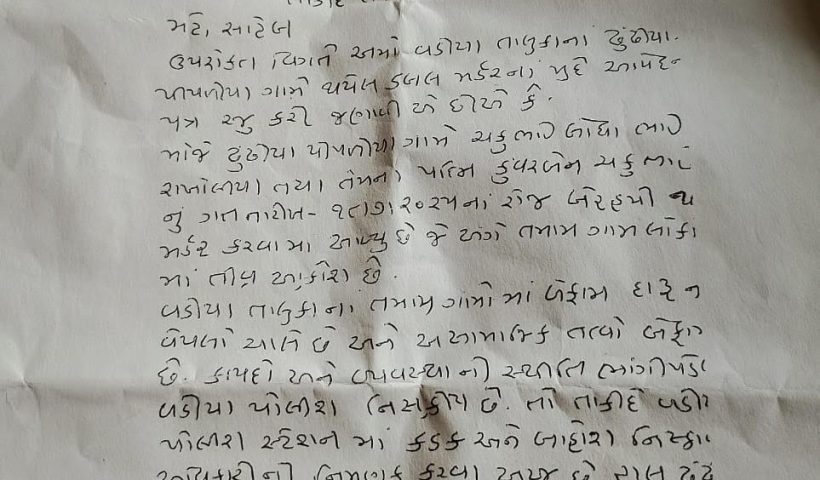 માટે, સાહેબ
ઉપરોક્ત વિગતે અમો વડીયા તાલુકાનાં ઢુંઢીયા
પીપળીયા ગામે થયેલ ડબલ મર્ડરનાં મુદે આવેદન
પત્ર રજુ કરી જણાવી એ છીએ કે.
મોજે ઢુંઢીયા પીપળીયા ગામે ચકુ ભાઈ બોઘા ભાઈ
રાખોલીયા તથા તેમના પત્નિ કુંવરબેન ચકુ ભાઈ
નું ગત તારીખ- ૧૮/૭/૨૦૨૫નાં રોજ બેરહમી થી
મર્ડર કરવામા આવ્યુ છે જે અંગે તમામ ગામ લોકો
માં તીવ્ર આક્રોશ છે.
વડીયા તાલુકા નાં તમામ ગામો માં બેફામ દારૂ ન
વેપલો ચાલે છે અને અસામાજિક તત્વો બેફામ
છે. કાયદો અને વ્યવસ્થા ની સ્થીતિ ભાંગી પડી
વડીયા પોલીશ નિસક્રીય છે. તો તાકીદે વડી
પોલીશ સ્ટેશન માં કડક અને બાહોશ
અધિકારીની નિમણુક કરવા અરજ છે